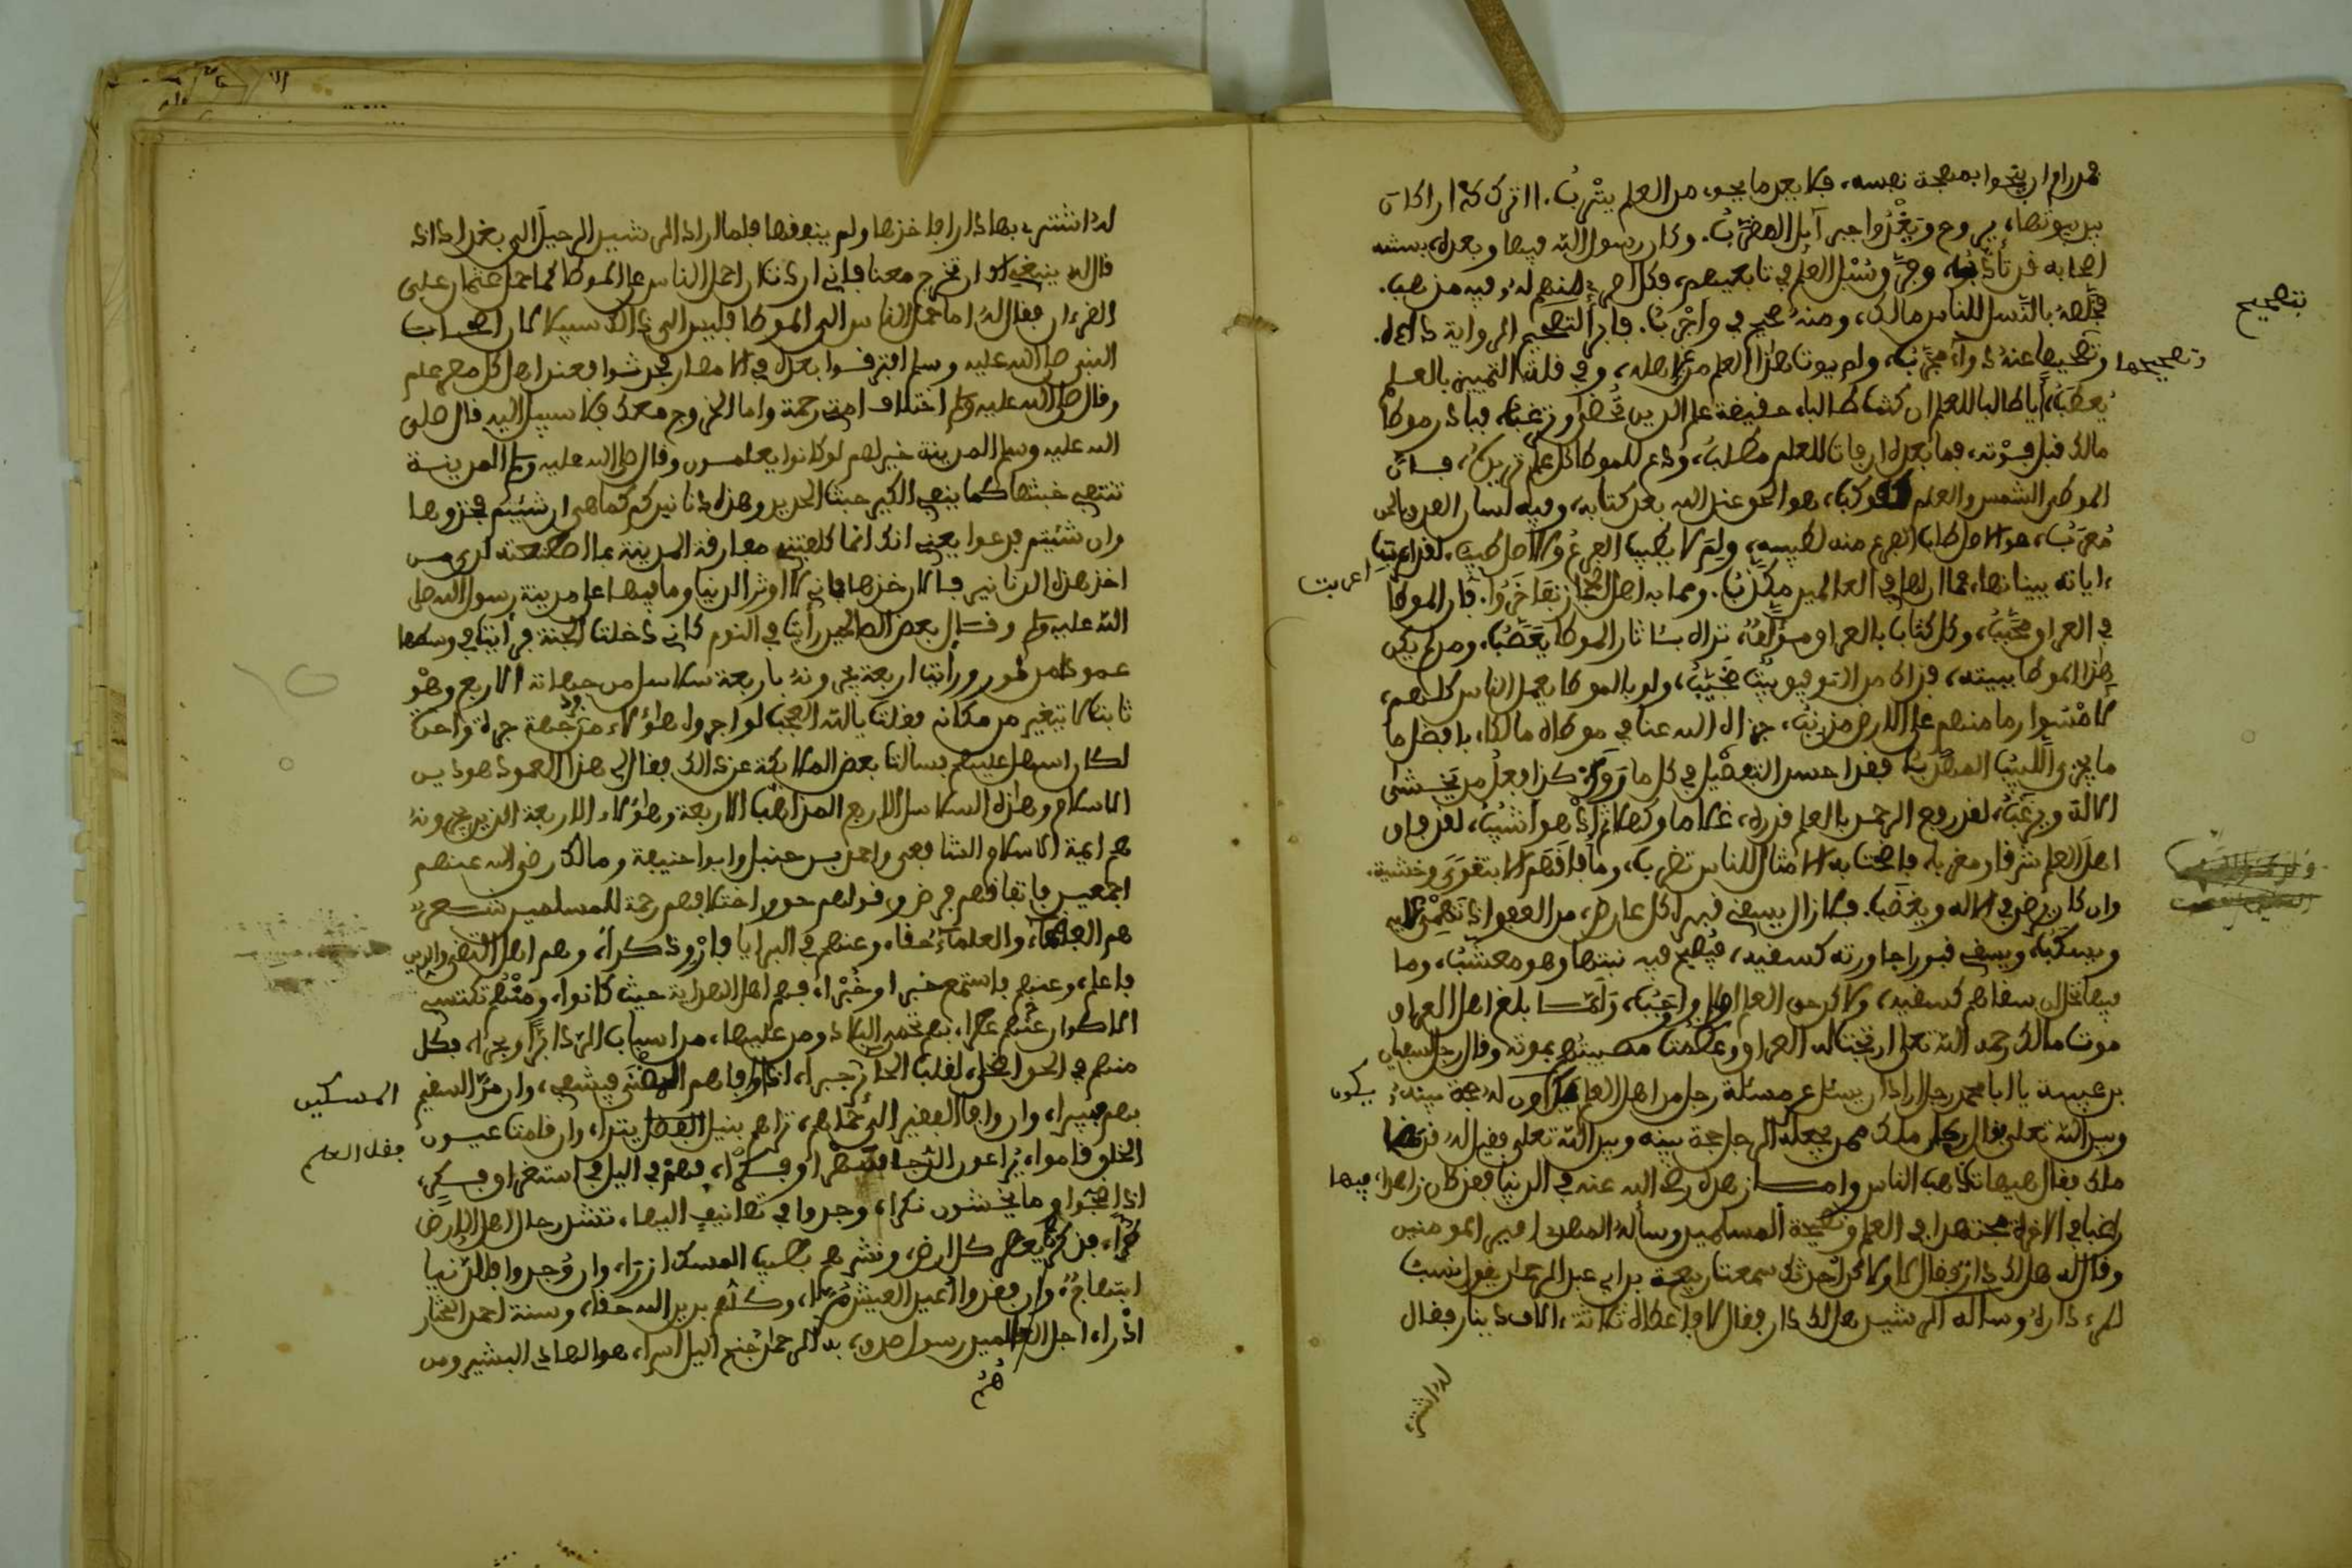 فمن رام ان ينجوا بمهجة نفسه، فلا يعد ما يحوى من العلم يثرب. ااترك دارا كان
بين بيوتها، يروح ويغدوا جبرءيل المقرب. وكان رسول الله فيها وبعده، بسنته
اصحابه قد تأدبوا، وفرق سبل العلم في تابعيهم، فكل امرئ منهم له فيه مذهب.
فخلصه بالسبك للناس مالك، ومنه صحيح في واجرب. فابرا لتصحيح الرواية داءه.
وتصحيحها عنه دواء مجرب، ولم يوت هذا العلم من اهله، وفي قلة التمييز بالعلم
يعطب، ايا طالبا للعلم ان كنت طالبا، حقيقة علم الدين محضا وترغب، فبادر موطا
مالك قبل فوته، فما بعده ان فات للعلم مطلب، ودع للموطا كل علم تريده، فان
الموطا الشمس والعلم كوكب، هو الحق عند الله بعد كتابه، وفيه لسان الصدق بالحق
معرب، هو الاصل طاب الفرع منه لطيبه، ولم لا يطيب الفرع والاصل طيب، لقد اعربت
ءاياته ببيناتها، فما ان لها في العالمين مكذب. ومما به اهل الحجاز تفاخروا. فان الموطا
في العراق محبب، وكل كتاب بالعراق مؤلف، تراه بئاثار الموطا يعصب، ومن لم يكن
هذا الموطا ببيته، فذاك من التوفيق بيت مخيب، ولو بالموطا يعمل الناس كلهم،
لامسوا وما منهم على الارض مذنب، جزى الله عنا في موطاه مالكا، بافضل ما
ما يجزى اللبيب المهذب فقد احسن التفضيل في كل ما روى كذا فعل من يخشى
الاله ويرغب، لقد رفع الرحمن بالعلم قدره، غلاما وكهلا ثم اذ هو اشيب، لقد فاق
اهل العلم شرقا ومغربا، فاضحت به الامثال للناس تضرب، وما فاقهم الا بتقوى وخشية.
وان كان يرضى في الاله ويغضب. فلا زال يسقى قبره كل عارض، من العفو اذ تهمى عليه
وتسكب، ويسقى قبورا جاورته كسقيه، فيصبح فيه نبتها وهو معشب، وما
فيها بخل ان سقاهم كسقيه، ولاكن حق العلم اولى واوجب، ولما بلغ اهل العراق
موت مالك رحمه الله تعلى ارتجت له العراق وعظمت مصيبتهم بموته وقال رجل لسفيان
بن عيينة يا ابا محمد رجل اراد ان يسئل عن مسئلة رجل من اهل العلم يكون له حجة بينه
وبين الله تعلى فقال مالك ممن يجعله الرجل حجة بينه وبين الله تعلى فقيل له قد مات
مالك فقال هيهات ذهب الناس وامسك زهده رضي الله عنه في الدنيا فقد كان زاهدا فيها
راغبا في الاخرة مجتهدا في العلم ونصيحة المسلمين وسأله المهدي امير المومنين
وقال له هل لك دار فقال لا ولاكن احدثك سمعت ربيعة بن ابي عبد الرحمن يقول نسب
المرء داره وساله الرشيد هل لك دار فقال لا فاعطاه ثلاثة ءالاف دينار فقال
بتصحيح
وتصحيحها
اعربت
يكون
فيها
له اشتر
له اشتر بها دارا فاخذها ولم ينفقها فلما اراد الرشيد الرحيل الى بغداد اذ
قال له ينبغى ان تخرج معنا فاني اردت ان احمل الناس على الموطا كما حمل عثمان على
القرءان فقال له اما حمل الناس الى الموطا فليس الى ذالك سبيلا لان اصحاب
النبي صلى الله عليه وسلم افترقوا بعده في الامصار فحدثوا فعند اهل كل مصر علم
وقال صلى الله عليه وسلم اختلاف امتي رحمة واما الخروج معك فلا سبيل اليه قال صلى
الله عليه وسلم المدينة خير لهم لو كانوا يعلمون وقال صلى الله عليه وسلم المدينة
تنفي خبثها كما ينفي الكير خبث الحديد وهذه دنانيركم كما هي ان شئتم فخذوها
وان شئتم فدعوا يعني انك انما كلفتني مفارقة المدينة بما اصطنعته لدي من
اخذ هذه الدنانير فالان خذها فاني لا اوثر الدنيا وما فيها على مدينة رسول الله صلى
الله عليه وسلم وقال بعض الصالحين رأيت في النوم كاني دخلت الجنة فرأيت في وسطها
عمودا من نور ورأيت اربعة يجرونه باربعة سلاسل من جهاته الاربع وهو
ثابت لا يتغير من مكانه فقلت يا لله العجب لو اجروه هؤلاء من جهة جرة واحدة
لكان اسهل عليهم فسالت بعض الملايكة عن ذالك فقال لي هذا العمود هو دين
الاسلام وهذه السلاسل الاربع المذاهب الاربعة وهؤلاء الاربعة الذين يجرونه
هم ايمة الاسلام الشافعي واحمد بن حنبل وابو حنيفة ومالك رضي الله عنهم
اجمعين فاتفاقهم فرض وقولهم حق واختلافهم رحمة للمسلمين شعر
هم الفقهاء والعلماء حقا، وعنهم في البرايا فارو ذكرا، وهم اهل التقى والدين
فاعلم، وعنهم فاستمع خبرا وخبرا، فهم اهل الهداية حيث كانوا، ومنهم تكتسي
الاكوان عطرا، بهم تحمى البلاد ومن عليها، من اسباب الردا برا وبحرا، فكل
منهم في الحق اضحى، لقلب الحائر جبرا، اذا وافاهم المضنى فيشفى، وان مر السقيم
بهم فيبرا، وان وافا الفقير الى حماهم، تراهم بنيل الفضل يترا، وان نامت عيون
الخلق قاموا، يراعون الدجا وفكرا، فهم في اليل في استغراق فكر،
اذا ضجوا وما يخشون نكرا، وجدوا في تصانيف اليها، تشد رحال اهل الارض
طرا، فذكرهم يعطر كل ارض، ونشرهم بطيب المسك ازرا، وان وجدوا فللدنيا
ابتهاج، وان فقدوا العيش مرا، وكلهم بدين الله حقا، وسنة احمد المختار
ادرا، اجل العالمين رسول صدق، به الرحمن جنح اليل اسرا، هو الهادي البشير ومن
المسكين
بفضل العلم
هم